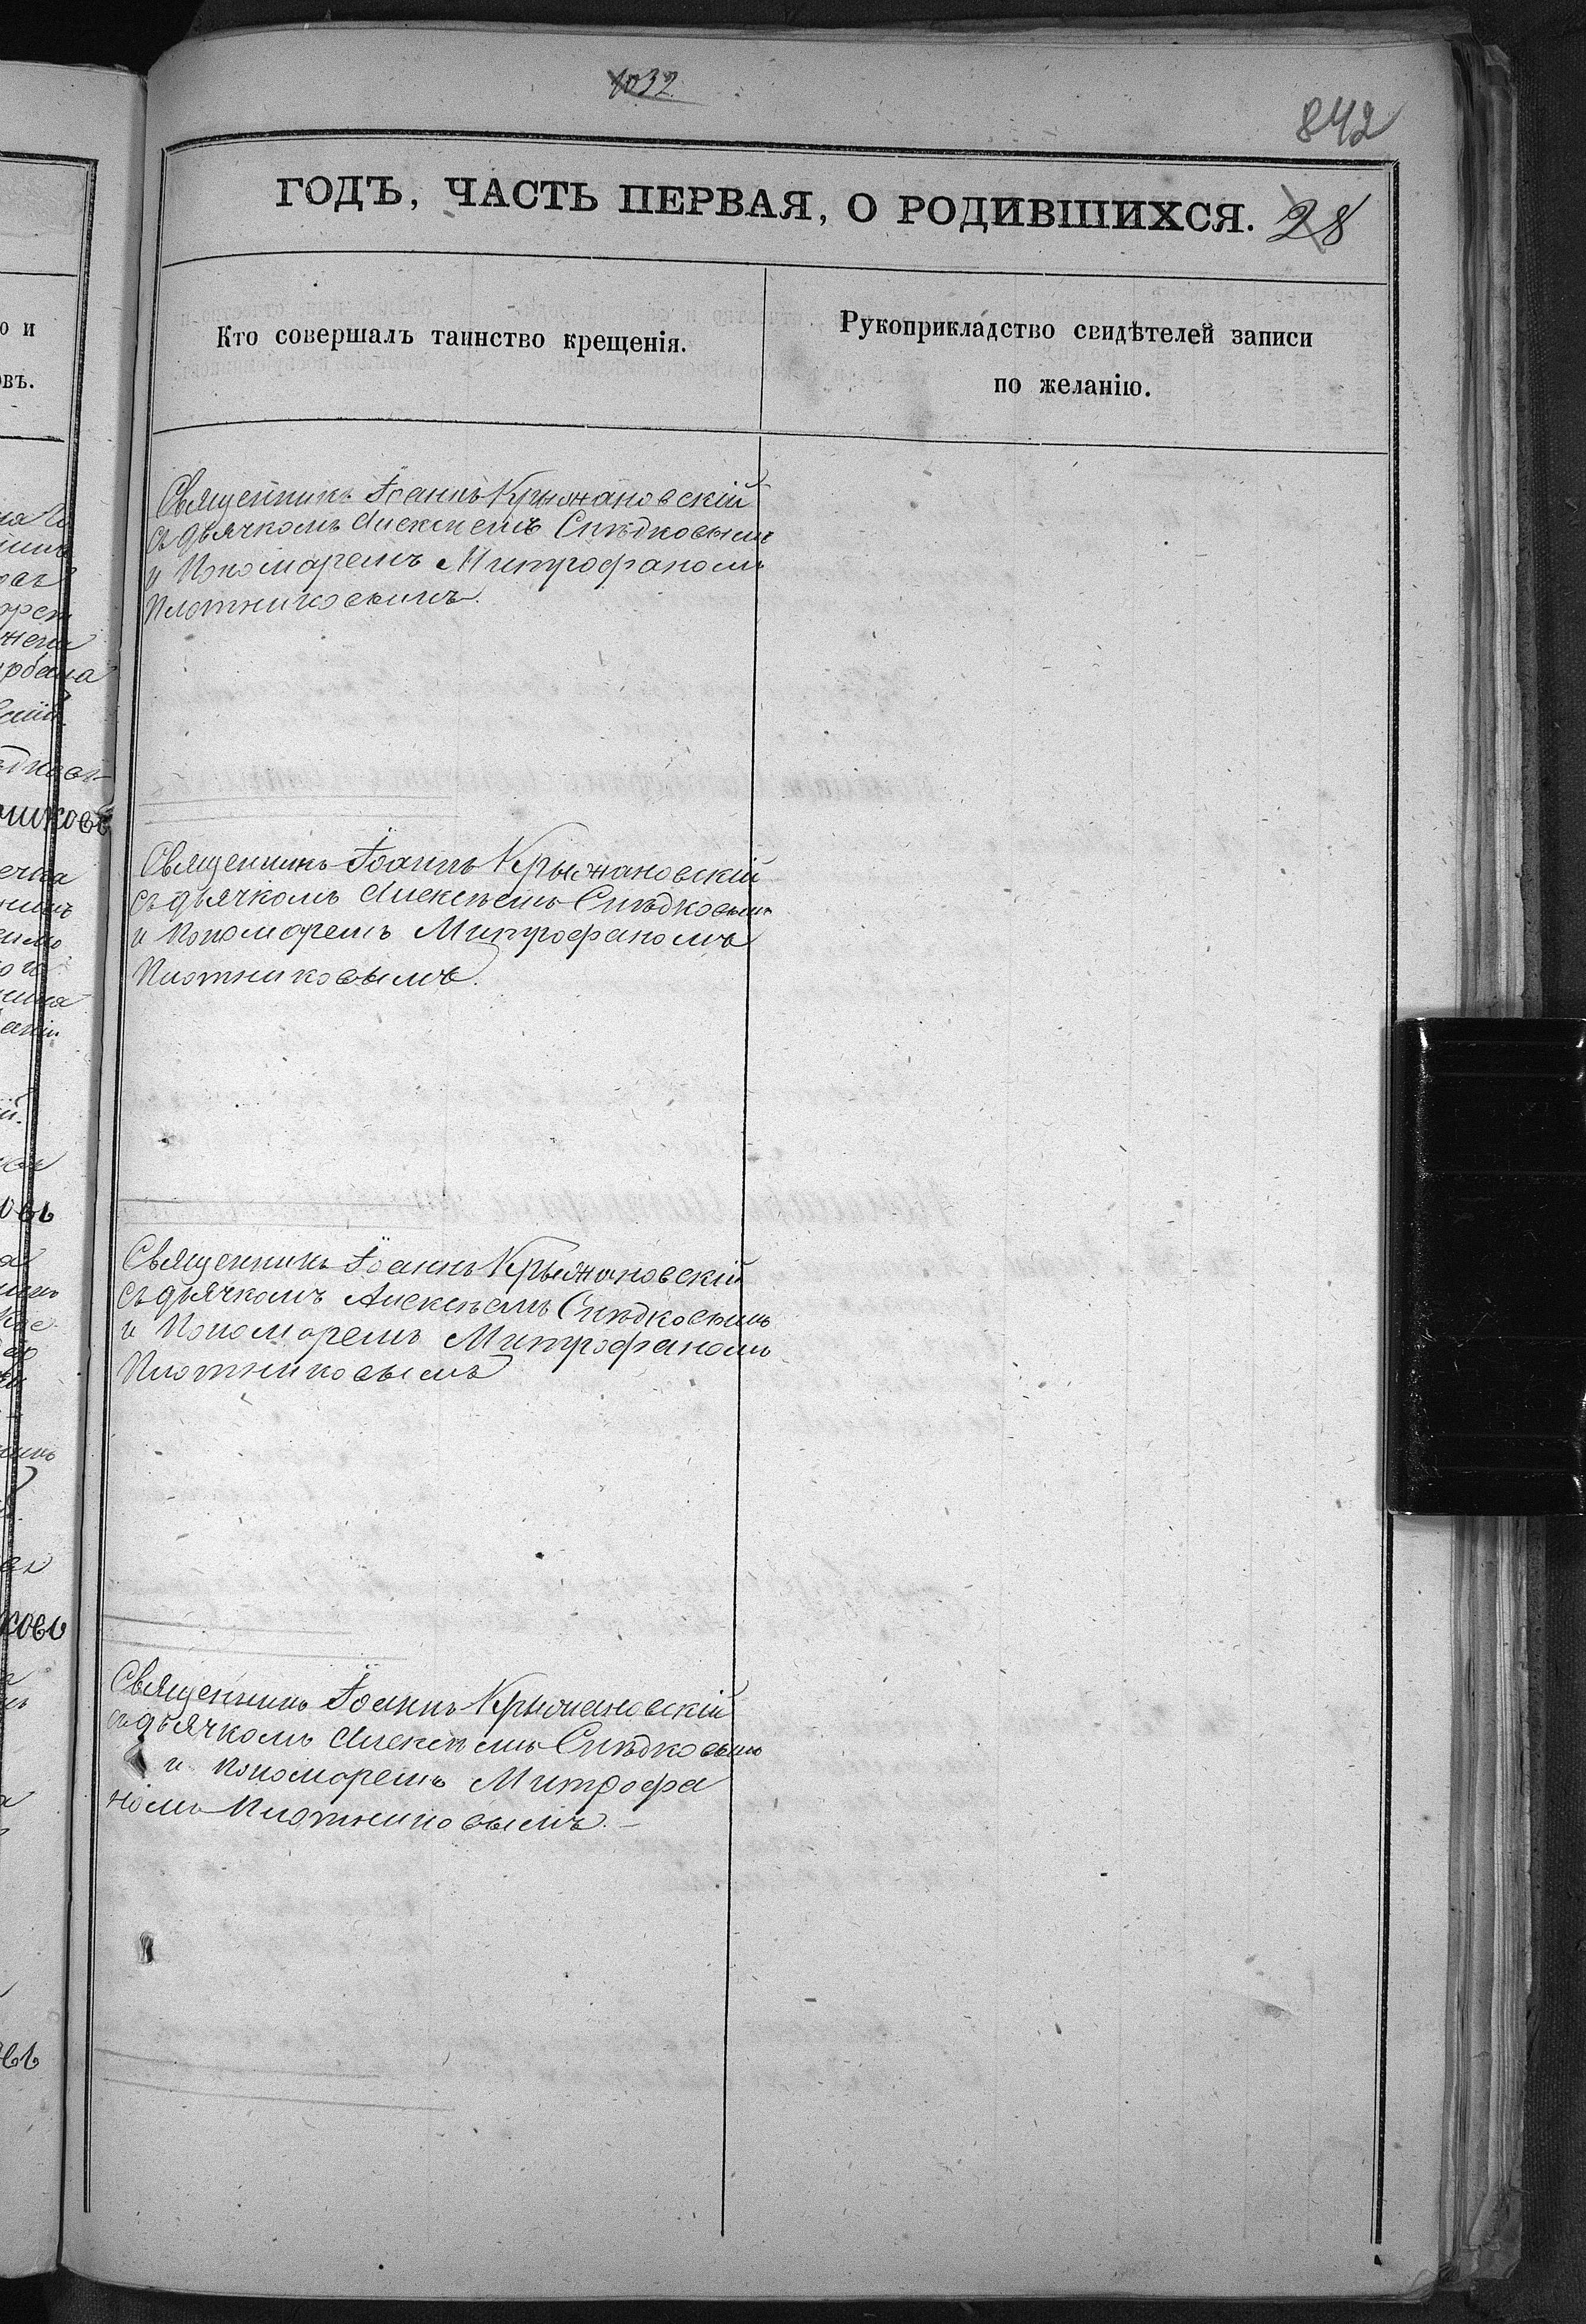 1032
842
ГОДЪ, ЧАСТЬ ПЕРВАЯ, О РОДИВШИХСЯ. 28
Кто совершалъ таинство крещенія.
Рукоприкладство свидѣтелей записи
по желанію.
Священникъ Іоаннъ Крыжановскій
съ дьячкомъ Алексѣемъ Слѣдковымъ
и Пономаремъ Митрофаномъ
Плотниковымъ.
Священникъ Іоаннъ Крыжановскій
съ дьячкомъ Алексѣемъ Слѣдковымъ
и Пономаремъ Митрофаномъ
Плотниковымъ.
Священникъ Іоаннъ Крыжановскій
съ дьячкомъ Алексѣемъ Слѣдковымъ
и Пономаремъ Митрофаномъ
Плотниковымъ
Священникъ Іоаннъ Крыжановскій
съ дьячкомъ Алексѣемъ Слѣдковымъ
и пономаремъ Митрофа
номъ Плотниковымъ.